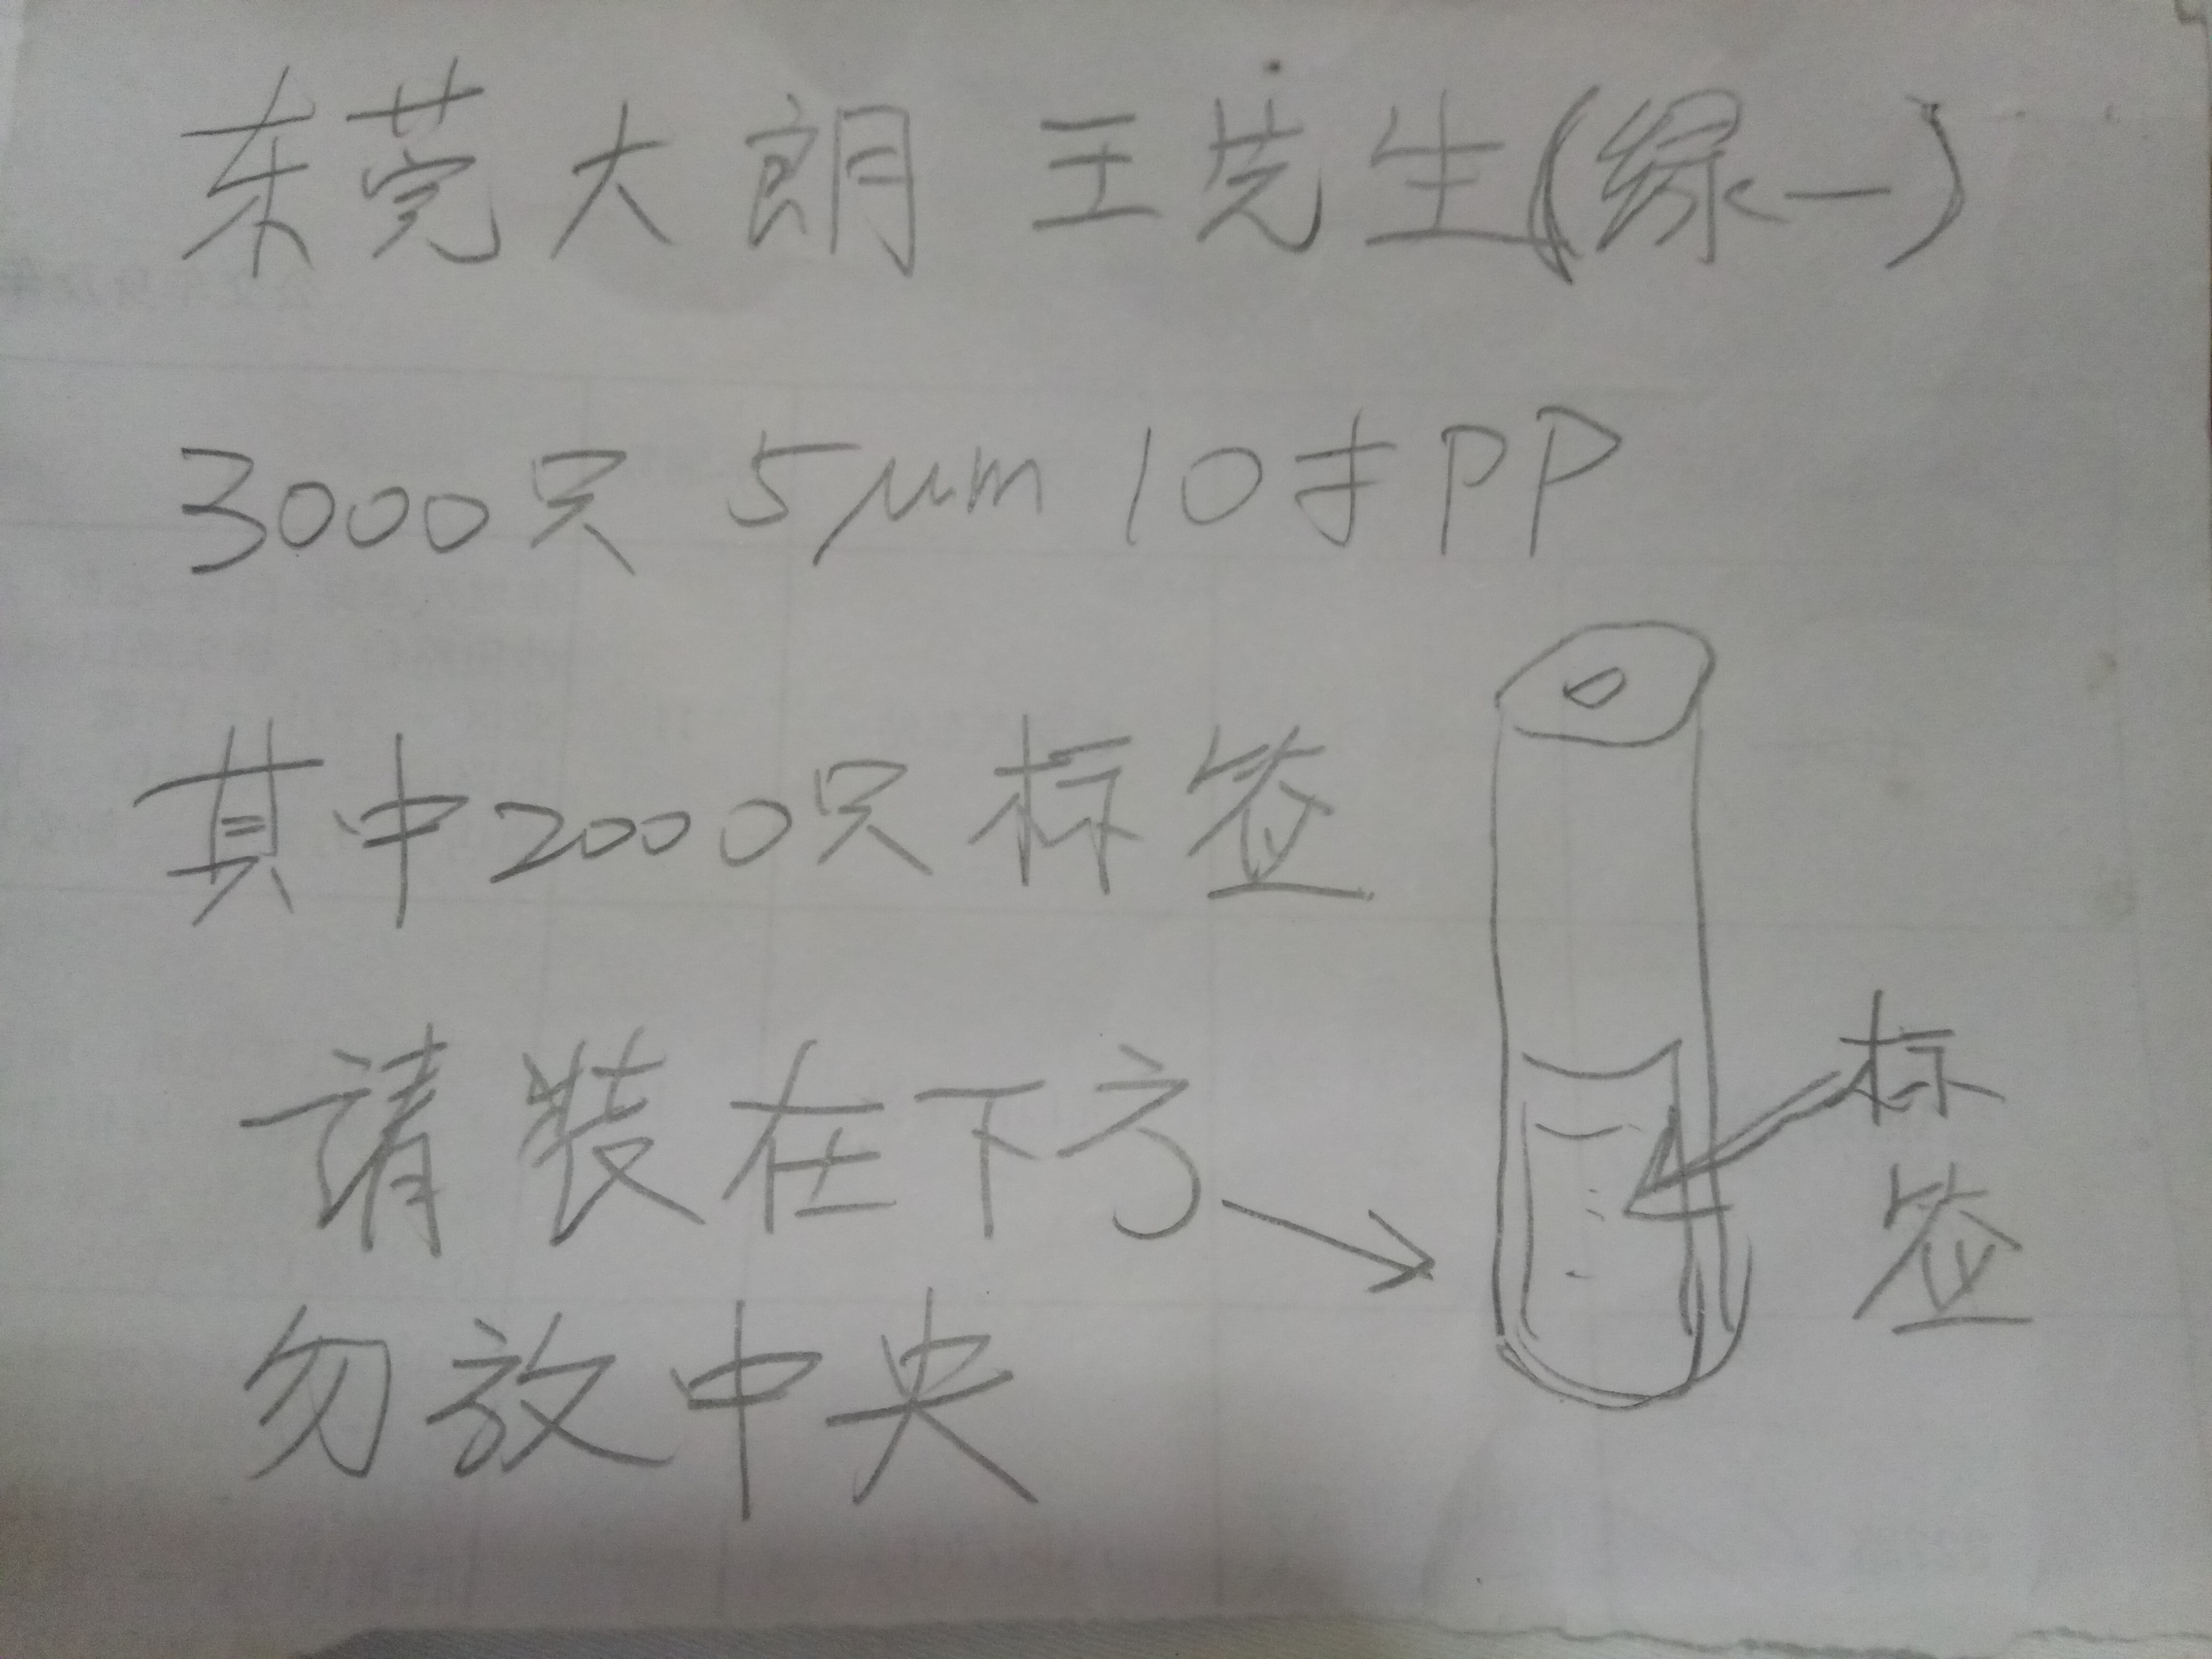 东莞大朗 王先生(绿一)
3000只 5μm 10寸PP
其中2000只标签
请装在下方
勿放中央
标
签